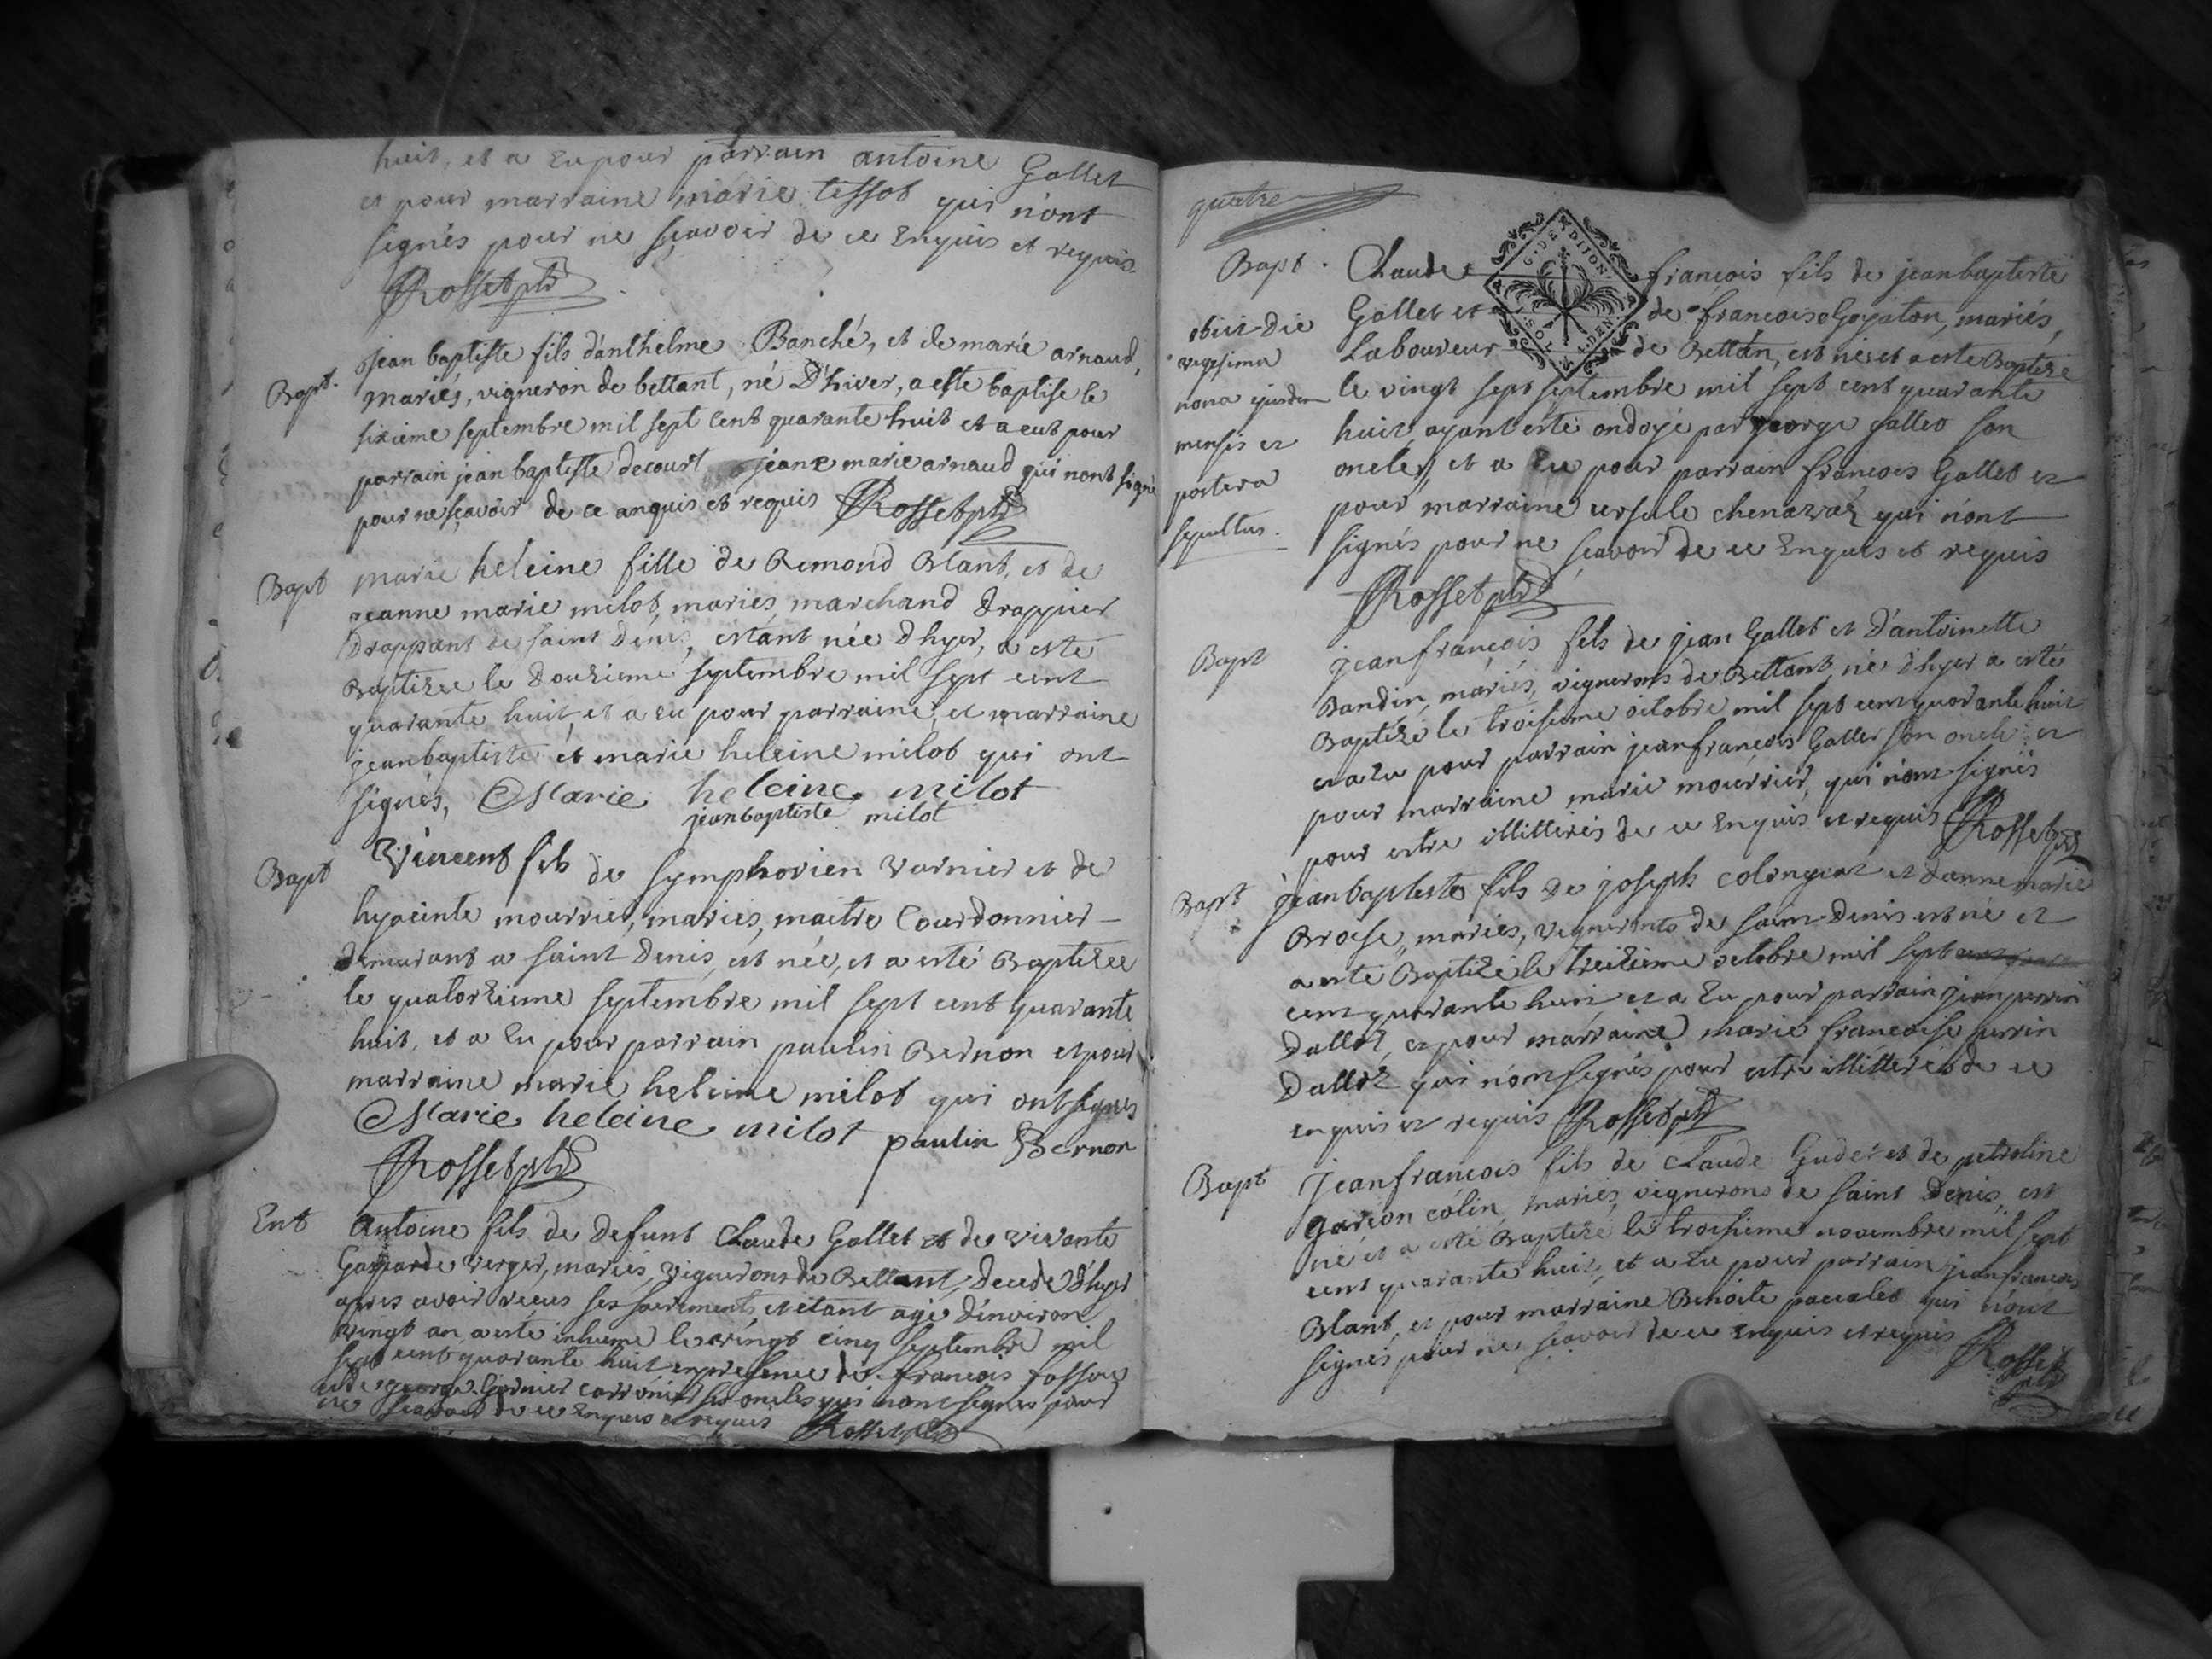 huit, et a Eu pour parrain antoine Gallet
et pour marraine marie tessot qui n'ont
signés pour ne sçavoir de ce Enquis et requis.
Rosset ptre
Bapt. jean baptiste fils d'anthelme Banché, et de marie arnaud,
mariés, vigneron de bettant, né D'hiver, a este baptise le
sixieme septembre mil sept cent quarante huit et a eut pour
parrain jean baptiste decourt jeane marie arnaud qui nont signé
pour ne sçavoir de ce anquis et requis Rosset ptre
Bapt marie heleine fille de Remond Blant, et de
jeanne marie milot, mariés, marchand Drappier
Drappant de saint Denis, estant née D'hyer, a esté
Baptizee le Douzieme septembre mil sept cent
quarante huit, et a eu pour parraine, et marraine
jeanbaptiste et marie heleine milot qui ont
signés, Marie heleine milot
jeanbaptiste milot
Bapt Vincent fils de symphorien Varnier et de
hyacinte mourrier, mariés, maitre Courdonnier
demurant a saint Denis, est née, et a esté Baptizee
le quatorzieme septembre mil sept cent quarante
huit, et a Eu pour parrain paulin Bernon et pour
marraine marie heleine milot qui ont signés
Marie heleine milot paulin Bernon
Rosset ptre
Ent Antoine fils de Defunt Claude Gallet et de vivante
Gasparde Verger, mariés, vignerons de Bettant, decede D'hyer
apres avoir receus ses sacrements, et etant agé d'environ
vingt an a esté inhumé le vingt cinq septembre mil
sept cent quarante huit en presence de francois
et de george Garnier ses oncles qui n'ont signés pour
ne sçavoir de ce Enquis et requis Rosset ptre
quatre
Bapt. Claude françois fils de jeanbaptiste
Gallet et de francoise Goyaton, mariés,
Laboureur de Bettan, est né et a este Baptizé
le vingt sept septembre mil sept cent quarante
huit, ayant esté ondoyé par george gallet son
oncle, et a Eu pour parrain francois Gallet et
pour marraine ursule chenavaz qui n'ont
signés pour ne sçavoir de ce Enquis et requis
Rosset ptre
obiit die
vigesima
nona ejusdem
mensis et
postera
sepultus.
Bapt jeanfrançois fils de jean Gallet et D'antoinette
Bandin, mariés, vignerons de Bettant, né D'hyer a esté
Baptizé le troisieme octobre mil sept cent quarante huit
et a Eu pour parrain jeanfrançois Gallet son oncle et
pour marraine marie mourrier, qui n'ont signés
pour estre illitterés de ce Enquis et requis Rosset ptre
Bapt jeanbaptiste fils de joseph et d'anne marie
Brosse, mariés, vignerons de saint Denis est né et
a esté Baptizé le treizieme octobre mil sept
cent quarante huit, et a Eu pour parrain jean perrin
Dalloz, et pour marraine marie françoise perrin
Dalloz qui n'ont signés pour estre illitterés de ce
enquis et requis Rosset ptre
Bapt jeanfrancois fils de claude Gudet et de petroline
garcon colin, mariés, vignerons de saint Denis, est
né et a esté Baptizé le troisieme novembre mil sept
cent quarante huit, et a Eu pour parrain jeanfrancois
Blant, et pour marraine Benoite qui n'ont
signés pour ne sçavoir de ce Enquis et requis
Rosset
ptre